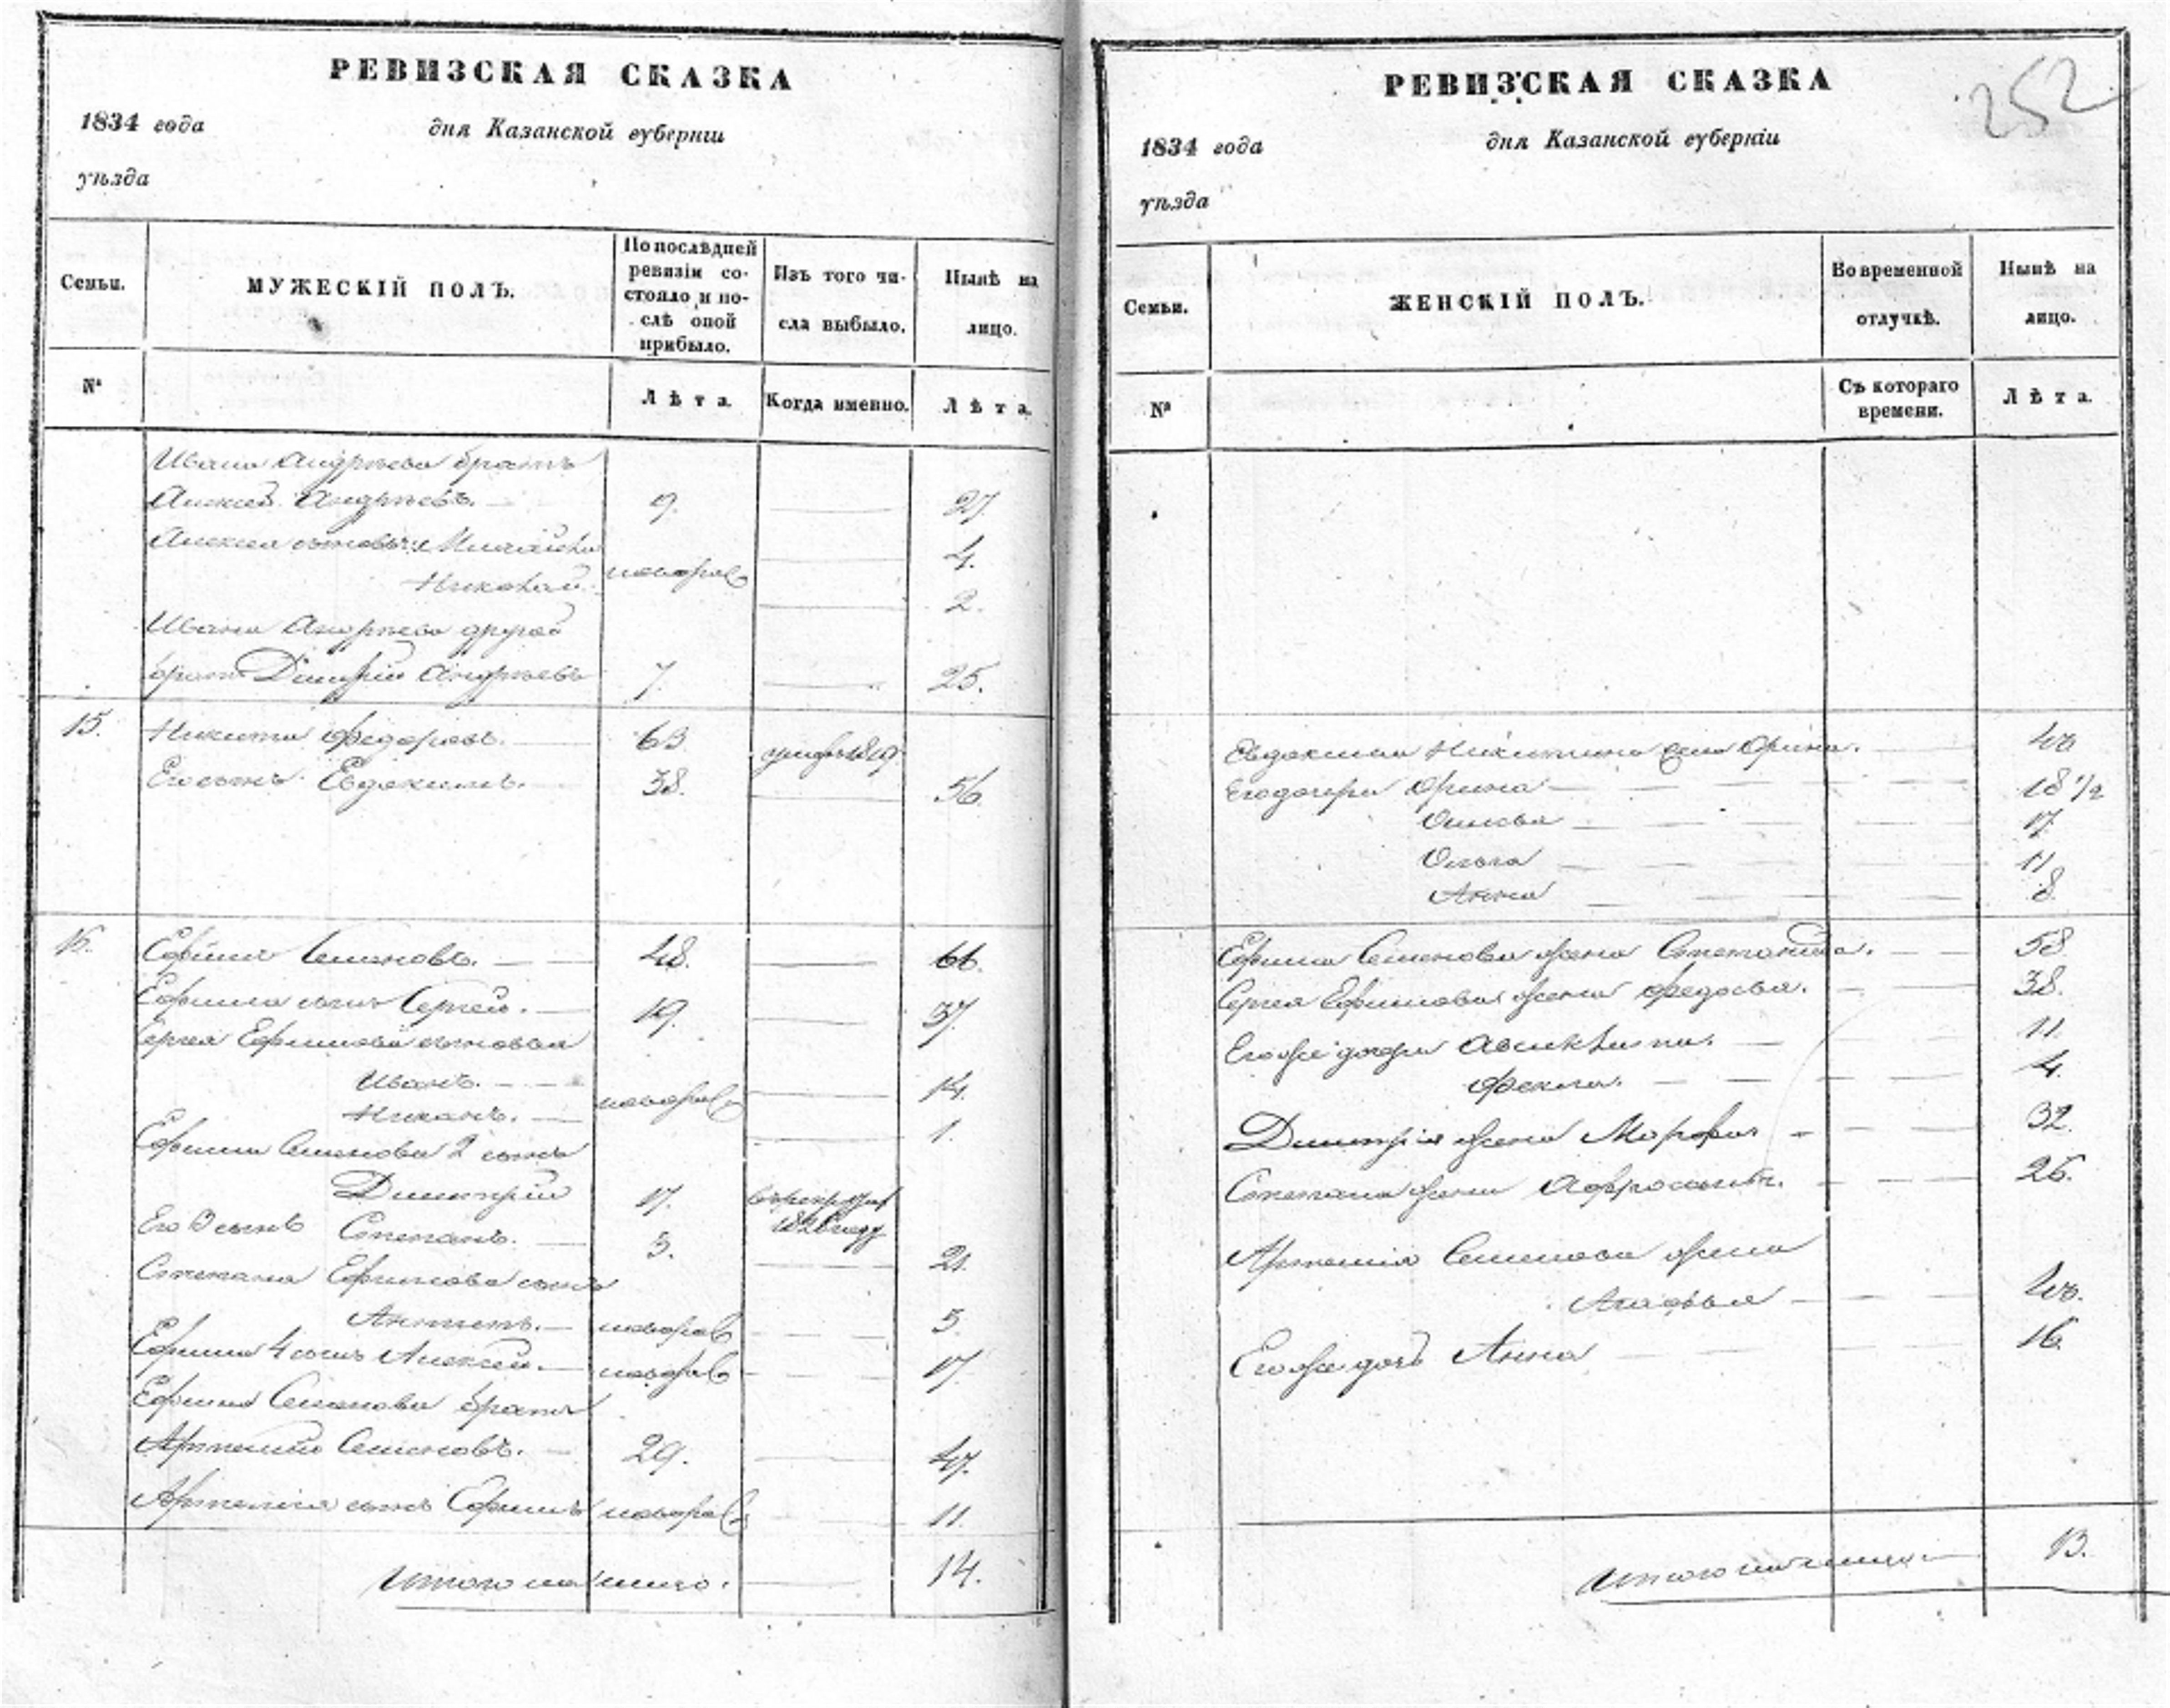 РЕВИЗСКАЯ СКАЗКА
1834 года дня Казанской губерніи
уѣзда
Семьи.
МУЖЕСКІЙ ПОЛЪ.
По послѣдней ревизіи состояло и послѣ оной прибыло.
Изъ того числа выбыло.
Нынѣ на лицо.
№
Лѣта.
Когда именно.
Лѣта.
Ивана Андреева братъ
Алексей Андреевъ. 9. 27.
Алексея сыновья: Михайла 4.
новорож
Николай 2.
Ивана Андреева другой
братъ Димитрій Андреевъ 7. 25.
15. Никита Федоровъ. 63
Его сынъ Евдокимъ. 38. 56.
16. Ефимъ Семеновъ. 48. 66.
Ефима сынъ Сергей. 19. 37.
Сергея Ефимова сыновья
Иванъ. 14.
новорож
1.
Ефима Семенова 2 сынъ
Димитрій 17. 1828 году
Его 3 сынъ Степанъ. 3. 21.
Степана Ефимова сынъ
новорож 3.
Ефима 4 сынъ Алексей. новорож 17.
Ефима Семенова братъ
Артемий Семеновъ. 29. 47.
Артемия сынъ Ефимъ новорож 11.
Итого на лицо. 14.
252
РЕВИЗСКАЯ СКАЗКА
1834 года дня Казанской губерніи
уѣзда
Семьи.
ЖЕНСКІЙ ПОЛЪ.
Во временной отлучкѣ.
Нынѣ на лицо.
№
Съ котораго времени.
Лѣта.
Евдокима Никитина жена Орина.
Его дочери Орина 18 1/2
17
Ольга 11
Анна 8.
Ефима Семенова жена Степанида. 58.
Сергея Ефимова жена Федосья. 38.
Его же дочери 11.
Фекла. 4.
Димитрія жена Марфа 32.
Степана жена 26.
Артемия Семенова жена
Агафья
Его же дочь Анна 16.
Итого на лицо 13.